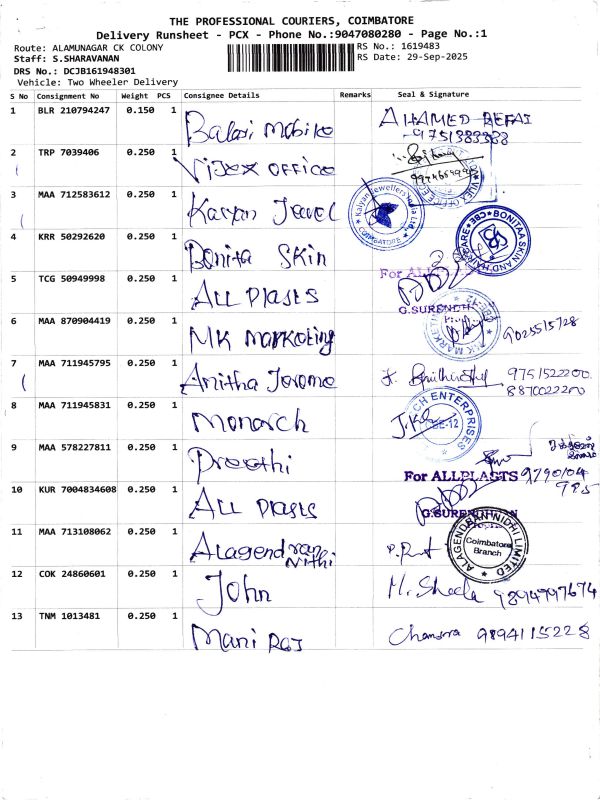 THE PROFESSIONAL COURIERS, COIMBATORE
Delivery Runsheet - PCX - Phone No.:9047080280 - Page No.:1
Route: ALAMUNAGAR CK COLONY RS No.: 1619483
Staff: S.SHARAVANAN RS Date: 29-Sep-2025
DRS No.: DCJB161948301
Vehicle: Two Wheeler Delivery
S No Consignment No Weight PCS Consignee Details Remarks Seal & Signature
1 BLR 210794247 0.150 1 Balaji Mobile AHAMED REFAI
9751383838
2 TRP 7039406 0.250 1 Vijex office
3 MAA 712583612 0.250 1 Kalyan Jewel Kalyan Jewellers India Ltd. COIMBATORE
4 KRR 50292620 0.250 1 Bonita Skin BONITAA SKIN AND HAIR CARE CBE
5 TCG 50949998 0.250 1 ALL Plasts For ALLPLASTS
G.SURENDH
6 MAA 870904419 0.250 1 MK Marketing 9025515728
7 MAA 711945795 0.250 1 Anitha Jerome 9751522200
8870022200
8 MAA 711945831 0.250 1 Monarch ENTERPRISES
9 MAA 578227811 0.250 1 Preethi
10 KUR 7004834608 0.250 1 ALL Plasts For ALLPLASTS 9790104
785
11 MAA 713108062 0.250 1 Alagendran Nithi ALAGENDRAN NIDHI LIMITED Coimbatore Branch
12 COK 24860601 0.250 1 John M. Sheela 9894797674
13 TNM 1013481 0.250 1 Mani Raj 9894115228